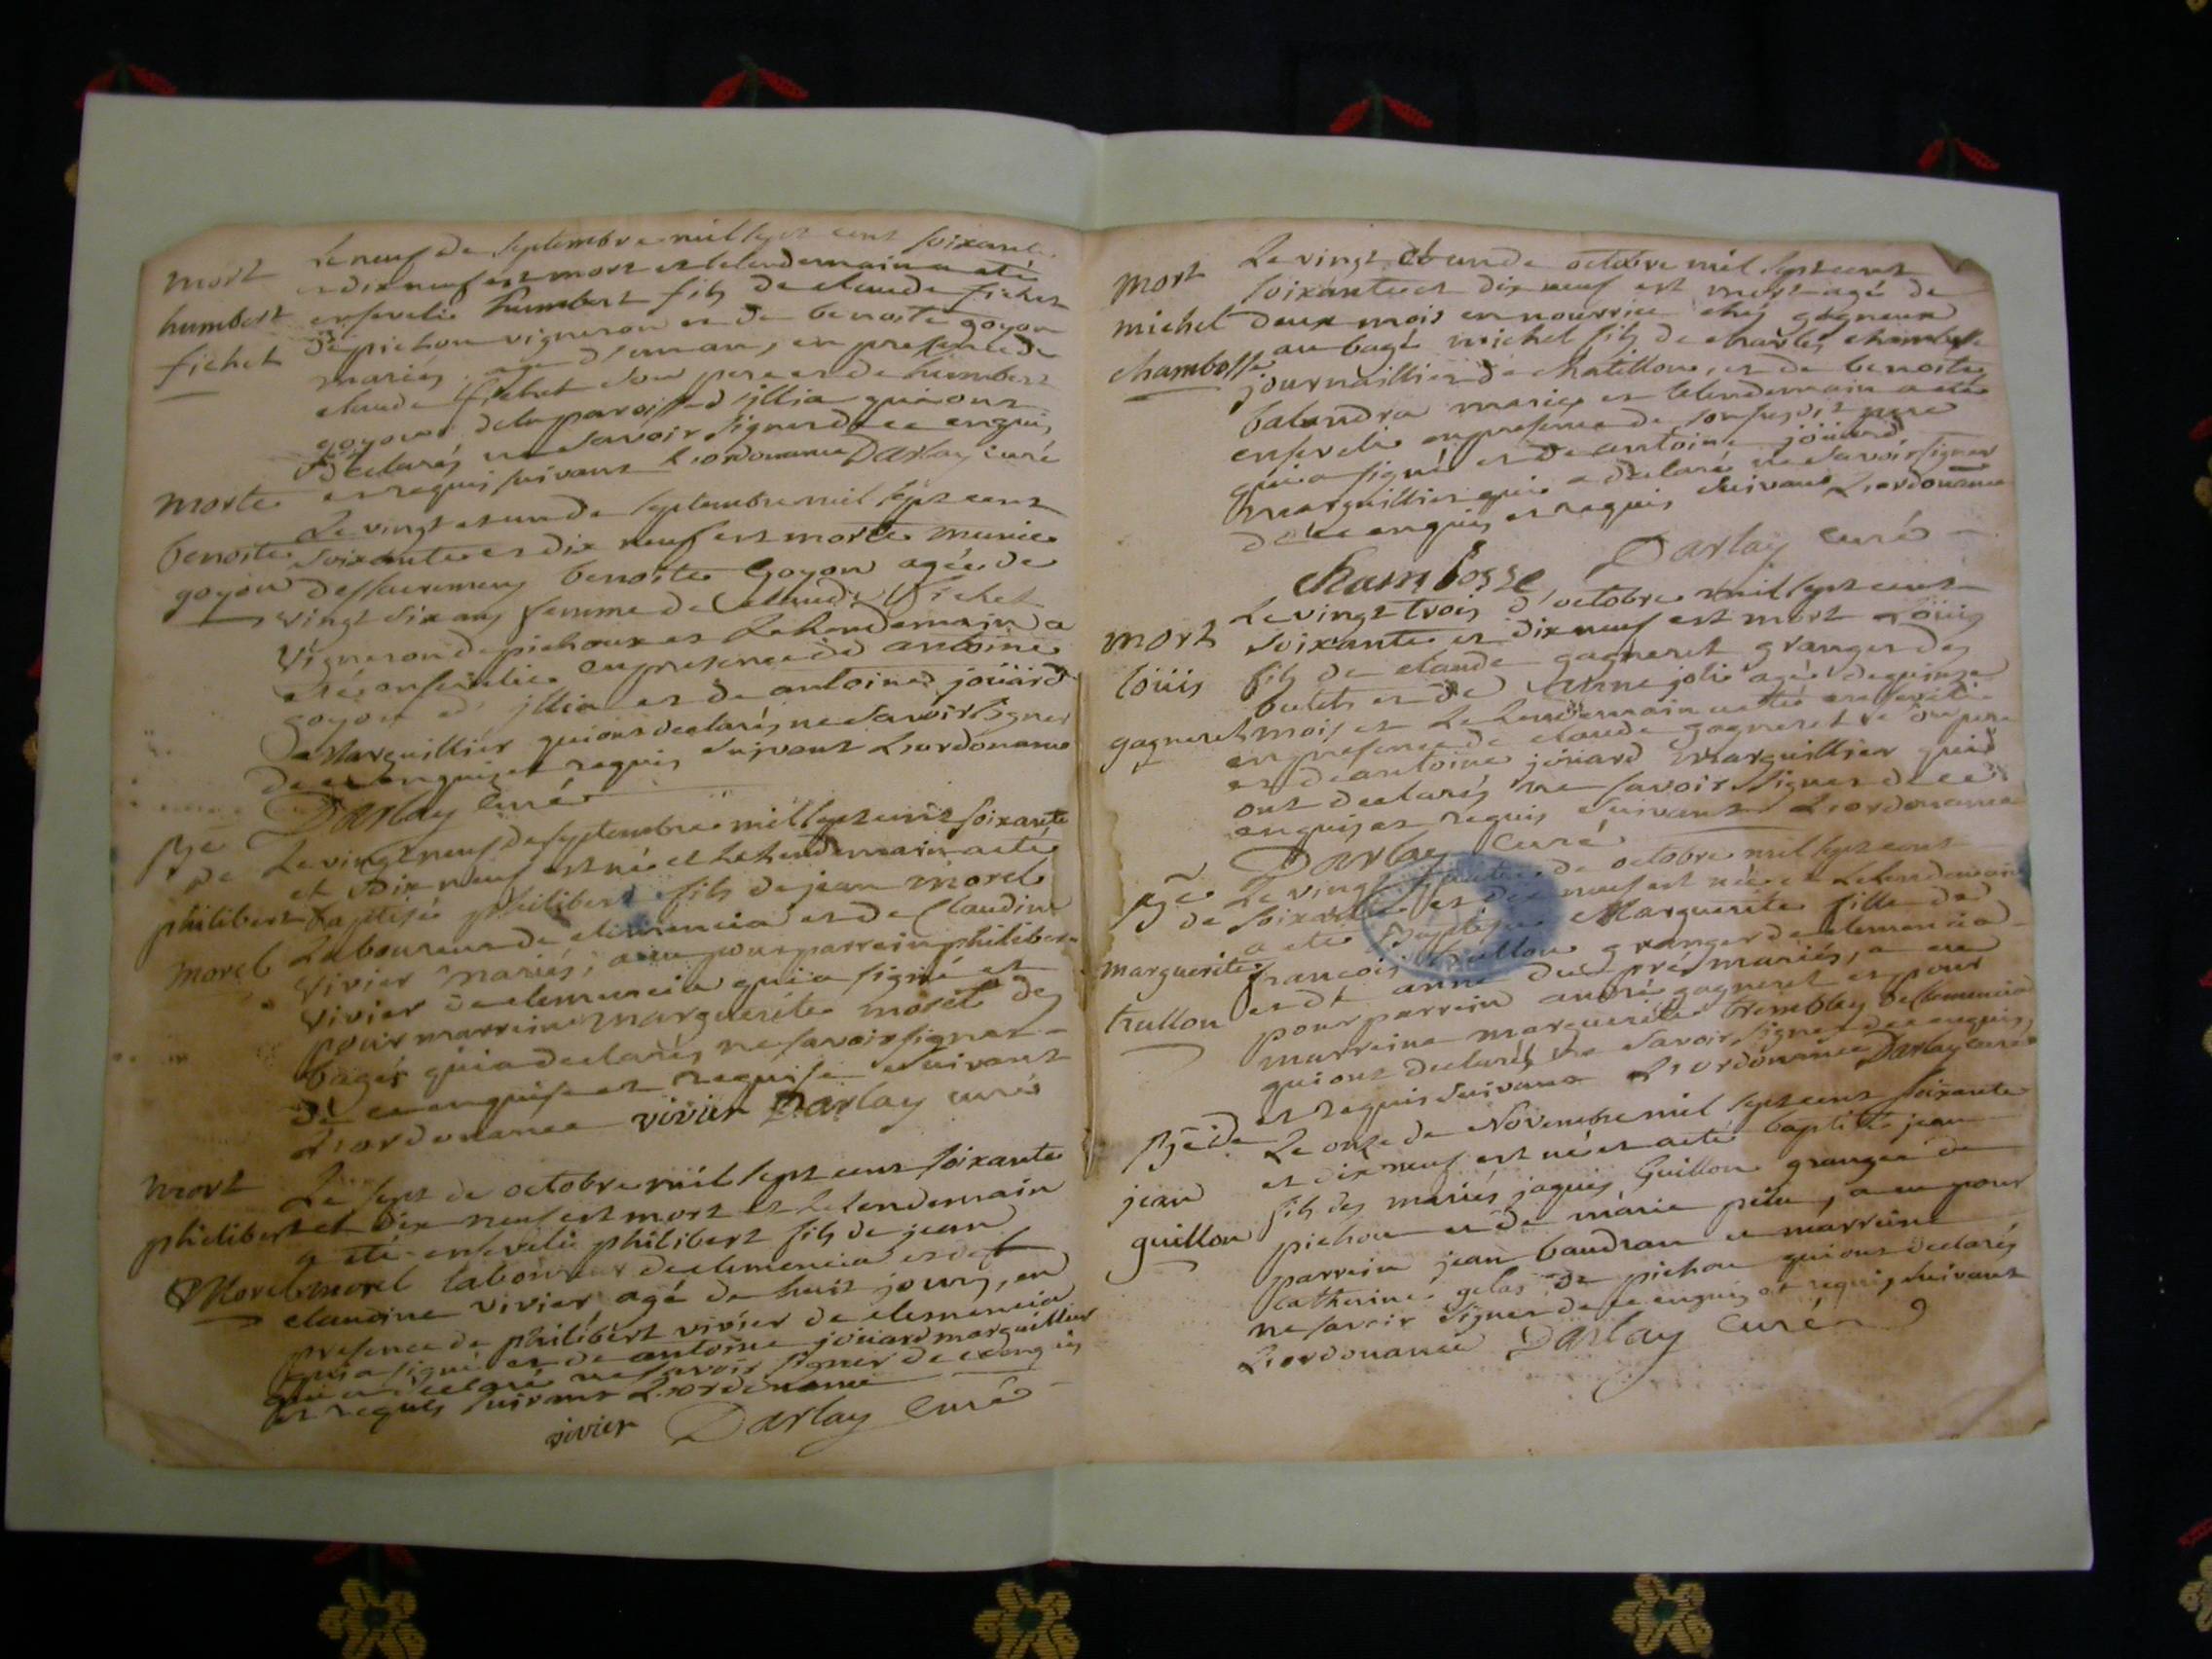 mort
humbert
fichet
Le neuf de septembre mil sept cent soixante
et dix neuf est mort et le lendemain a eté
enseveli humbert fils de claude fichet
de pichou vigneron et de benoite goyon
mariés, agé d'un an, en presence de
claude fichet son pere et de humbert
goyon de la paroisse d'illia qui ont
declarés ne savoir signer de ce enquis
et requis suivant L'ordonance Darlay curé
morte
benoite
goyon
Le vingt et un de septembre mil sept cent
soixante et dix neuf est morte munie
des sacremens benoite Goyon agée de
vingt six ans femme de claude fichet
vigneron de pichoux et Le Lendemain a
eté ensevelie en presence de antoine
goyon d'illia et de antoine joüard
Marguillier qui ont declarés ne savoir signer
de ce enquis et requis suivant L'ordonance
Darlay curé
Bte
de
philibert
morel
Le vingt neuf de septembre mil sept cent soixante
et dix neuf est né et Le Lendemain a eté
baptisé philibert fils de jean morel
Laboureur de clemencia et de claudine
vivier mariés; a eu pour parrein philibert
vivier de clemencia qui a signé et
pour marreine marguerite morel des
bagés qui a declarés ne savoir signer
de ce enquise et requise suivant
L'ordonance vivier Darlay curé
mort
philibert
Morel
Le sept de octobre mil sept cent soixante
et dix neuf est mort et Le lendemain
a eté enseveli philibert fils de jean
morel laboureur de clemencia et de
claudine vivier agé de huit jours, en
presence de philibert vivier de clemencia
qui a signé et de antoine joüard marguillier
qui a declaré ne savoir signer de ce enquis
et requis suivant L'ordonance
vivier Darlay curé
mort
michel
chambosse
Le vingt et un de octobre mil sept cent
soixante et dix neuf est mort agé de
deux mois en nourrice chés gagneux
au bagé michel fils de charles chambosse
journaillier de chatillon, et de benoite
balandra mariés et le lendemain a eté
enseveli en presence de son susdit pere
qui a signé et de antoine joüard
marguillier qui a declaré ne savoir signer
de ce enquis et requis suivant L'ordonance
chambosse Darlay curé
mort
loüis
gagneret
Le vingt trois d'octobre mil sept cent
soixante et dix neuf est mort Loüis
fils de claude gagneret granger des
bulets et de jolie agé de quinze
mois et Le Lendemain a eté enseveli
en presence de claude gagneret son pere
et de antoine joüard Marguillier qui
ont declarés ne savoir signer de ce
enquis et requis suivant L'ordonance
Darlay curé
Bte
de
marguerite
trullon
Le vingt de octobre mil sept cent
soixante et dix neuf est née et Le Lendemain
a eté Baptisée Marguerite fille de
francois trullon granger de clemencia
et de anne du pré mariés, a eu
pour parrein andré gagneret et pour
marreine marguerite tremblay de clemencia
qui ont declarés ne savoir signer de ce enquis
et requis suivant L'ordonance Darlay curé
Bte de
jean
guillon
Le onze de Novembre mil sept cent soixante
et dix neuf est né et a eté baptisé jean
fils des mariés jaques Guillon granger de
pichou et de marie, a eu pour
parrein jean baudran et marreine
catherine gelas de pichou qui ont declarés
ne savoir signer de ce enquis et requis suivant
L'ordonance Darlay curé